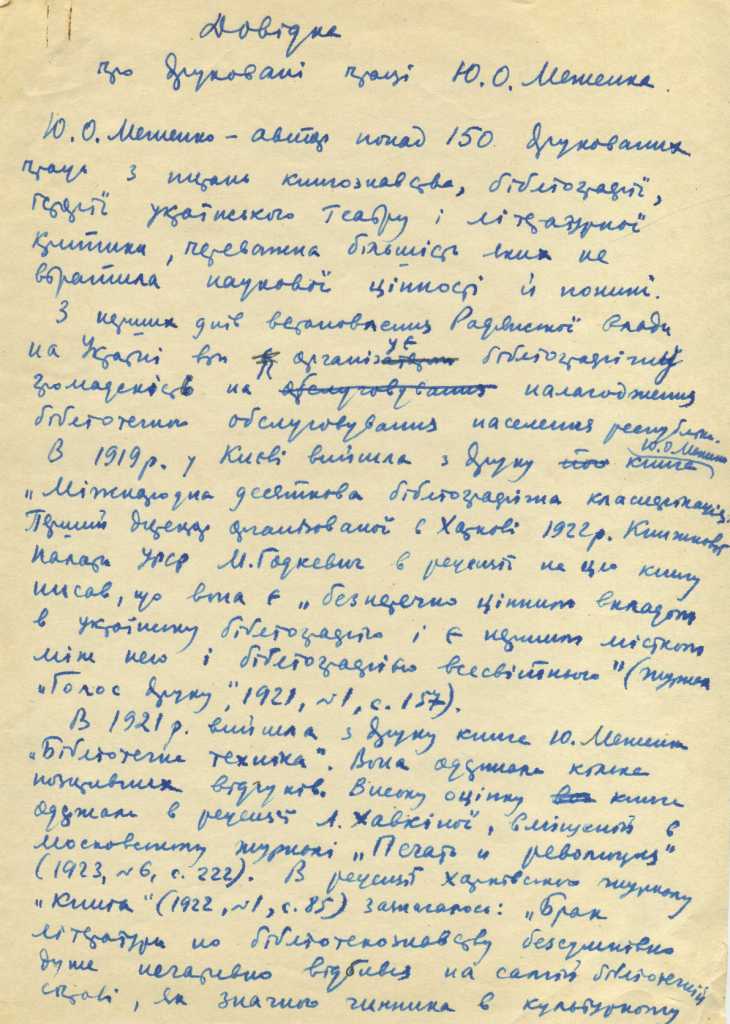 Довідка
про друковані праці Ю.О. Меженка.
Ю.О. Меженко – автор понад 150 друкованих
праць з питань книгознавства, бібліографії,
історії українського театру і літературної
критики, переважна більшість яких не
втратила наукової цінності й понині.
З перших днів встановлення Радянської влади
на Україні він організує бібліографічну
громадськість на обслуговування налагодження
бібліотечного обслуговування населення республіки.
В 1919 р. у Києві вийшла з друку книга Ю.О. Меженка
„Міжнародна десяткова бібліографічна класифікація".
Перший директор організованої в Харкові 1922 р. Книжкової
Палати УРСР М. Годкевич в рецензії на цю книгу
писав, що вона є „безперечно цінним вкладом
в українську бібліографію і є першим містком
між нею і бібліографією всесвітньою" (журнал
„Голос друку", 1921, №1, с. 157).
В 1921 р. вийшла з друку книга Ю. Меженка
„Бібліотечна техніка". Вона одержала кілька
позитивних відгуків. Високу оцінку книга
одержала в рецензії Л. Хавкіної, вміщеній в
московському журналі „Печать и революция"
(1923, №6, с. 222). В рецензії харківського журналу
„Книга" (1922, №1, с. 85) зазначалось: „Брак
літератури по бібліотекознавству безсумнівно
дуже негативно відбився на самій бібліотечній
справі, як значного чинника в культурному